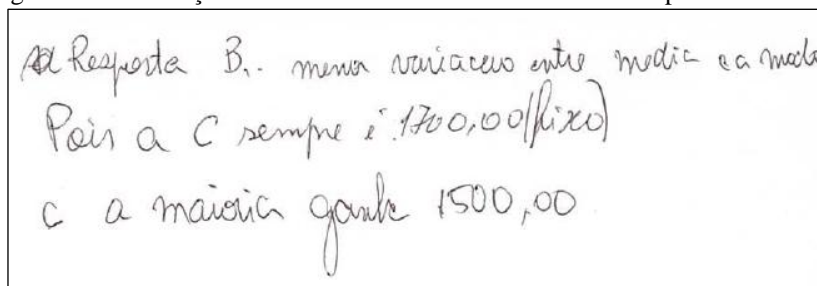 A Resposta B. menor variacao entre media e a moda
Pois a C sempre é 1700,00 (fixo)
e a maioria ganha 1500,00